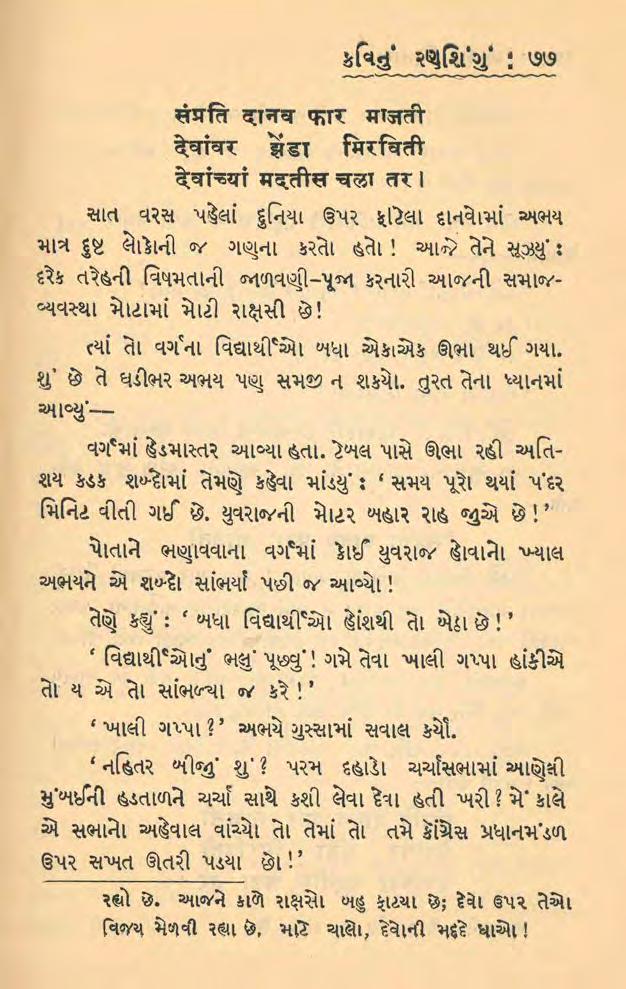 કવિનું રણશિંગું : ૭૭
संप्रति दानव फार माजती
देवांवर झेंडा मिरविती
देवांच्यां मदतीस चला तर।
સાત વરસ પહેલાં દુનિયા ઉપર ફાટેલા દાનવોમાં અભય
માત્ર દુષ્ટ લોકોની જ ગણના કરતો હતો! આજે તેને સૂઝ્યું :
દરેક તરેહની વિષમતાની જાળવણી–પૂજા કરનારી આજની સમાજ-
વ્યવસ્થા મોટામાં મોટી રાક્ષસી છે!
ત્યાં તો વર્ગના વિદ્યાર્થીઓ બધા એકાએક ઊભા થઈ ગયા.
શું છે તે ઘડીભર અભય પણ સમજી ન શક્યો. તુરત તેના ધ્યાનમાં
આવ્યું—
વર્ગમાં હેડમાસ્તર આવ્યા હતા. ટેબલ પાસે ઊભા રહી અતિ-
શય કડક શબ્દોમાં તેમણે કહેવા માંડ્યું : ‘સમય પૂરો થયાં પંદર
મિનિટ વીતી ગઈ છે. યુવરાજની મોટર બહાર રાહ જુએ છે!’
પોતાને ભણાવવાના વર્ગમાં કોઈ યુવરાજ હોવાનો ખ્યાલ
અભયને એ શબ્દો સાંભર્યા પછી જ આવ્યો!
તેણે કહ્યું : ‘બધા વિદ્યાર્થીઓ હોંશથી તો બેઠા છે!’
‘વિદ્યાર્થીઓનું ભલું પૂછવું! ગમે તેવા ખાલી ગપ્પા હાંકીએ
તો ય એ તો સાંભળ્યા જ કરે!’
‘ખાલી ગપ્પા?’ અભયે ગુસ્સામાં સવાલ કર્યો.
‘નહિતર બીજું શું? પરમ દહાડે ચર્ચાસભામાં આણેલી
મુંબઈની હડતાળને ચર્ચા સાથે કશી લેવા દેવા હતી ખરી? મેં કાલે
એ સભાનો અહેવાલ વાંચ્યો તો તેમાં તો તમે કોંગ્રેસ પ્રધાનમંડળ
ઉપર સખત ઊતરી પડયા છો!’
રહ્યો છે. આજને કાળે રાક્ષસો બહુ ફાટયા છે; દેવો ઉપર તેઓ
વિજય મેળવી રહ્યા છે, માટે ચાલો, દેવોની મદદે ધાઓ!